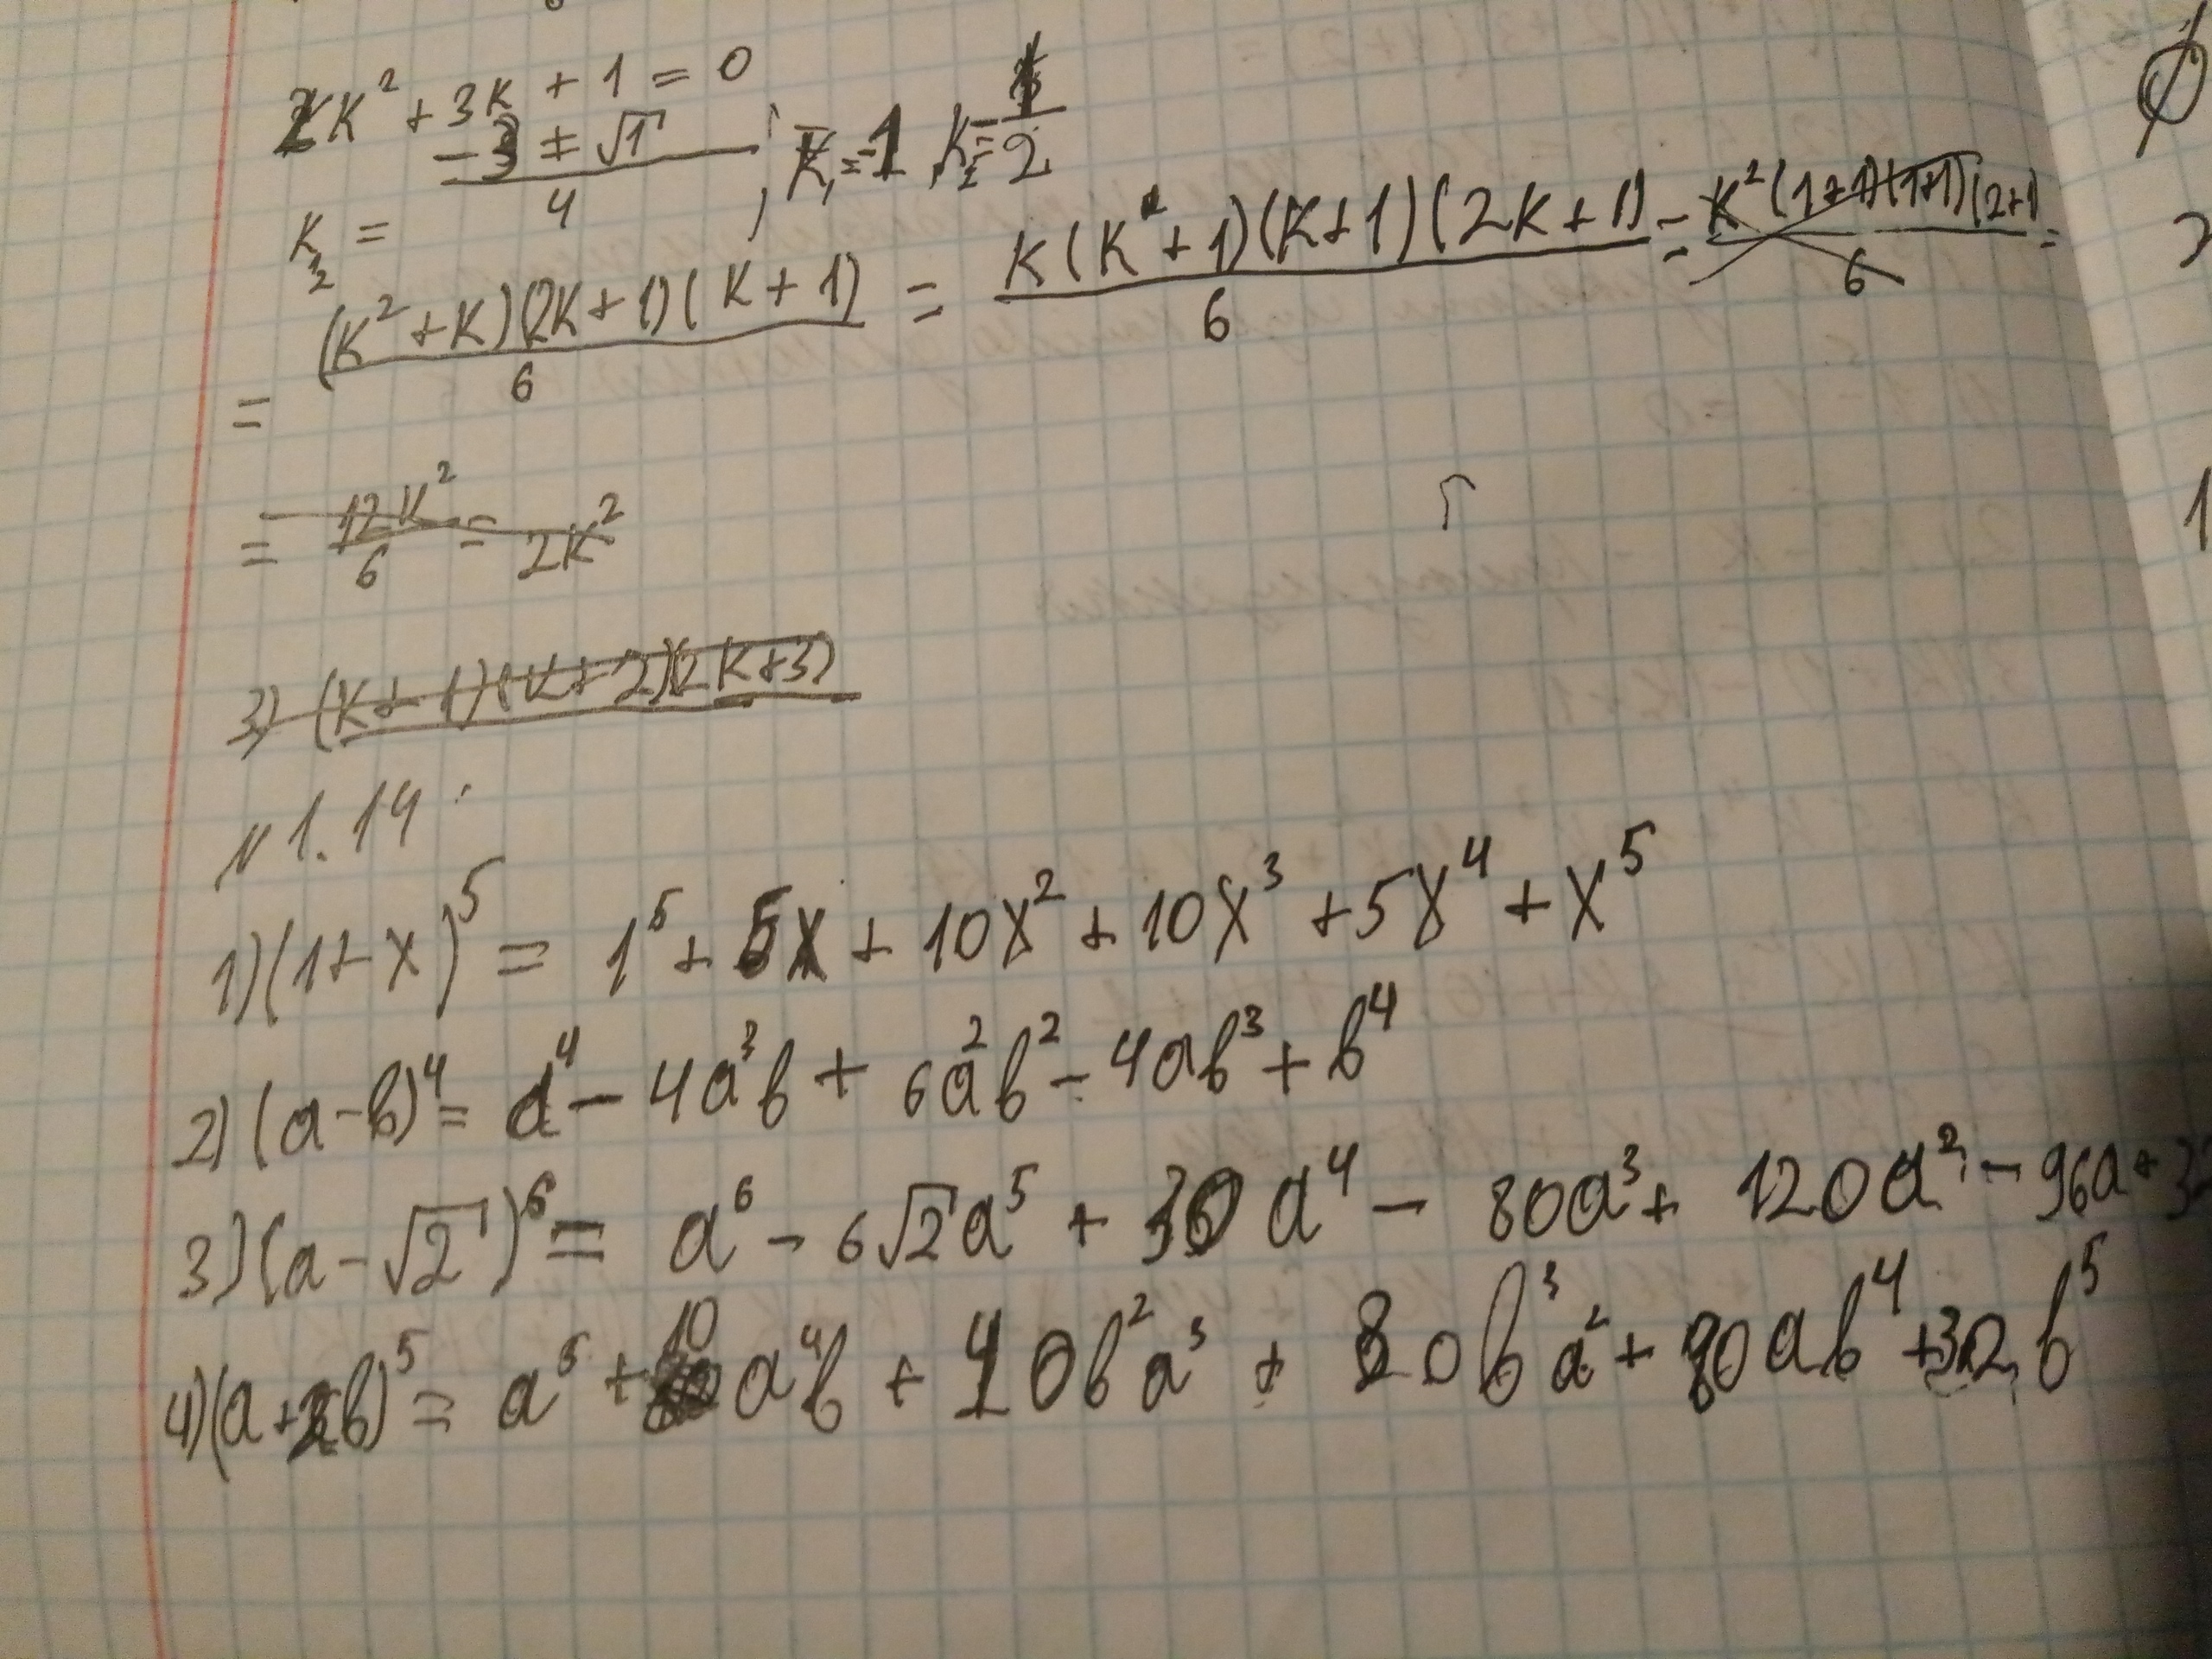 2k² + 3k + 1 = 0
k₁,₂ = (-3 ± √1)/4 ; k₁ = -1, k₂ = -1/2
= (k² + k)(2k + 1)(k + 1)/6 = k(k² + 1)(k + 1)(2k + 1)/6 = k²(1+1)(1+1)(2+1)/6 =
= 12k²/6 = 2k²
3) (k + 1)(k + 2)(2k + 3)
N 1.14
1) (1 + x)⁵ = 1⁵ + 5x + 10x² + 10x³ + 5x⁴ + x⁵
2) (a - b)⁴ = a⁴ - 4a³b + 6a²b² - 4ab³ + b⁴
3) (a - √2)⁶ = a⁶ - 6√2a⁵ + 30a⁴ - 80a³ + 120a² - 96a +
4) (a + 2b)⁵ = a⁵ + 10a⁴b + 40b²a³ + 80b³a² + 80ab⁴ + 32b⁵